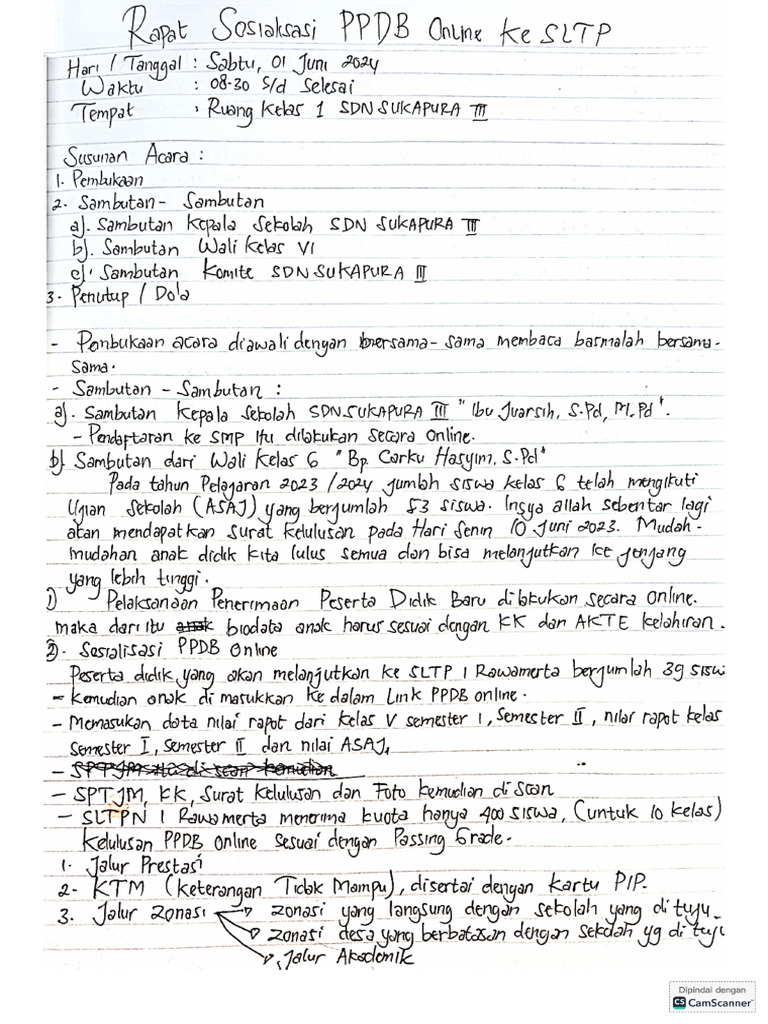 Rapat Sosialsasi PPDB Online ke SLTP
Hari / Tanggal : Sabtu, 01 Juni 2024
Waktu : 08.30 s/d selesai
Tempat : Ruang Kelas 1 SDN SUKAPURA III
Susunan Acara :
1. Pembukaan
2. Sambutan - Sambutan
a). Sambutan Kepala Sekolah SDN SUKAPURA III
b). Sambutan Wali Kelas VI
c). Sambutan Komite SDN SUKAPURA III
3. Penutup / Do'a
- Penbukaan acara diawali dengan bersama-sama membaca basmalah bersama-
sama.
- Sambutan - Sambutan :
a). Sambutan Kepala Sekolah SDN.SUKAPURA III "Ibu Juarsih, S.Pd, M.Pd".
- Pendaftaran ke SMP itu dilakukan secara online.
b) Sambutan dari Wali Kelas 6 "Bp. Carku Hasyim, S.Pd"
Pada tahun Pelajaran 2023/2024 jumlah siswa kelas 6 telah mengikuti
Ujian Sekolah (ASAJ) yang berjumlah 53 siswa. Insya allah sebentar lagi
akan mendapatkan surat kelulusan pada Hari Senin 10 Juni 2023. Mudah-
mudahan anak didik kita lulus semua dan bisa melanjutkan ke jenjang
yang lebih tinggi.
1) Pelaksanaan Penerimaan Peserta Didik Baru dilakukan secara online.
maka dari itu anak biodata anak harus sesuai dengan KK dan AKTE kelahiran.
2). Sosialisasi PPDB Online
Peserta didik yang akan melanjutkan ke SLTP 1 Rawamerta berjumlah 39 sisw
- Kemudian anak di masukkan ke dalam Link PPDB online.
- Memasukan data nilai rapot dari kelas V semester 1, Semester II, nilai rapot kelas
Semester I, Semester II dan nilai ASAJ.
- SPTJM di scan kemudian
- SPTJM, KK, Surat kelulusan dan Foto kemudian di scan
- SLTPN 1 Rawamerta menerima kuota hanya 400 siswa, (untuk 10 kelas)
Kelulusan PPDB Online sesuai dengan Passing Grade.
1. Jalur Prestasi
2. KTM (Keterangan Tidak Mampu), disertai dengan kartu PIP.
3. Jalur Zonasi → zonasi yang langsung dengan sekolah yang di tuju.
→ zonasi desa yang berbatasan dengan sekolah yg di tuju
→ Jalur Akademik
Dipindai dengan
CS CamScanner